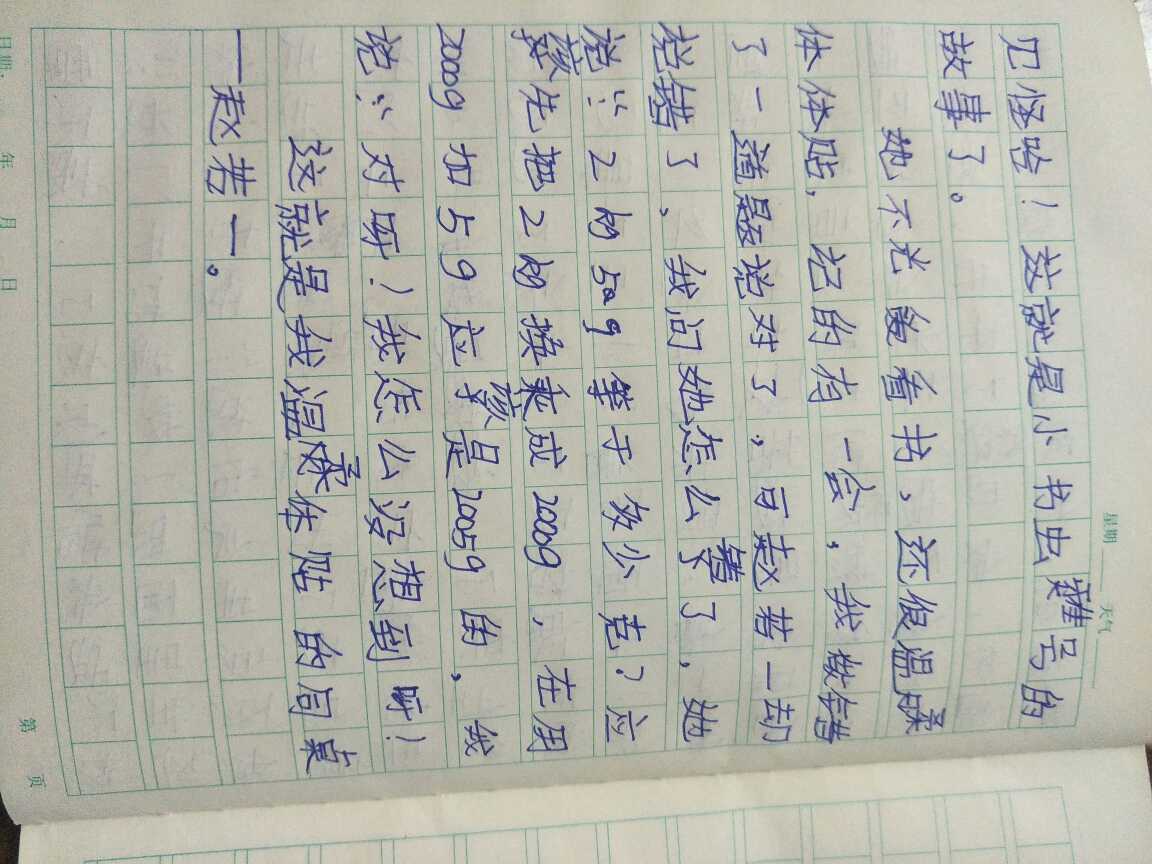 星期 天气
见怪哈！这就是小书虫难号的
故事了。
她不光爱看书、还很温
体体贴，记的有一会，我做错
了一道题她对了，可赵若一却
说错了、我问她怎么算了，她
说：2的50g等于多少克？应
先把2的换成2000g，在用
2000g加5g应是2005g的，我
说：对呀！我怎么没想到呀！
这就是我温体贴的同桌
一赵若一。
日期： 年 月 日 第 页